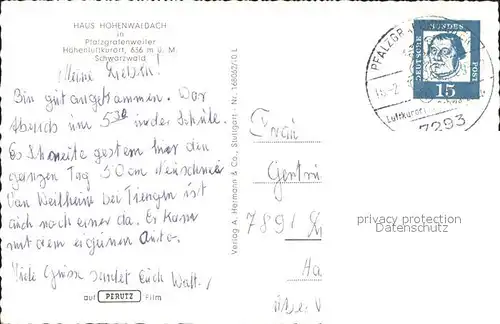 HAUS HOHENWALDACH
in
Pfalzgrafenweiler
Höhenluftkurort, 656 m ü. M.
Schwarzwald
Meine Lieben!
Bin gut angekommen. War
abends um 5 30 in der Schule.
Es schneite gestern hier den
ganzen Tag 30 cm Neuschnee
Von Weilheim bei Tiengen ist
auch noch einer da. Er kam
mit dem eigenen Auto.
Viele Grüsse sendet Euch Walt.
auf PERUTZ Film
Verlag A. Hermann & Co., Stuttgart Nr. 16806/10 L
PFALZGR
DEUTSCHE BUNDESPOST
15
Luftkurort
7293
Frau
7891
privacy protection
Datenschutz